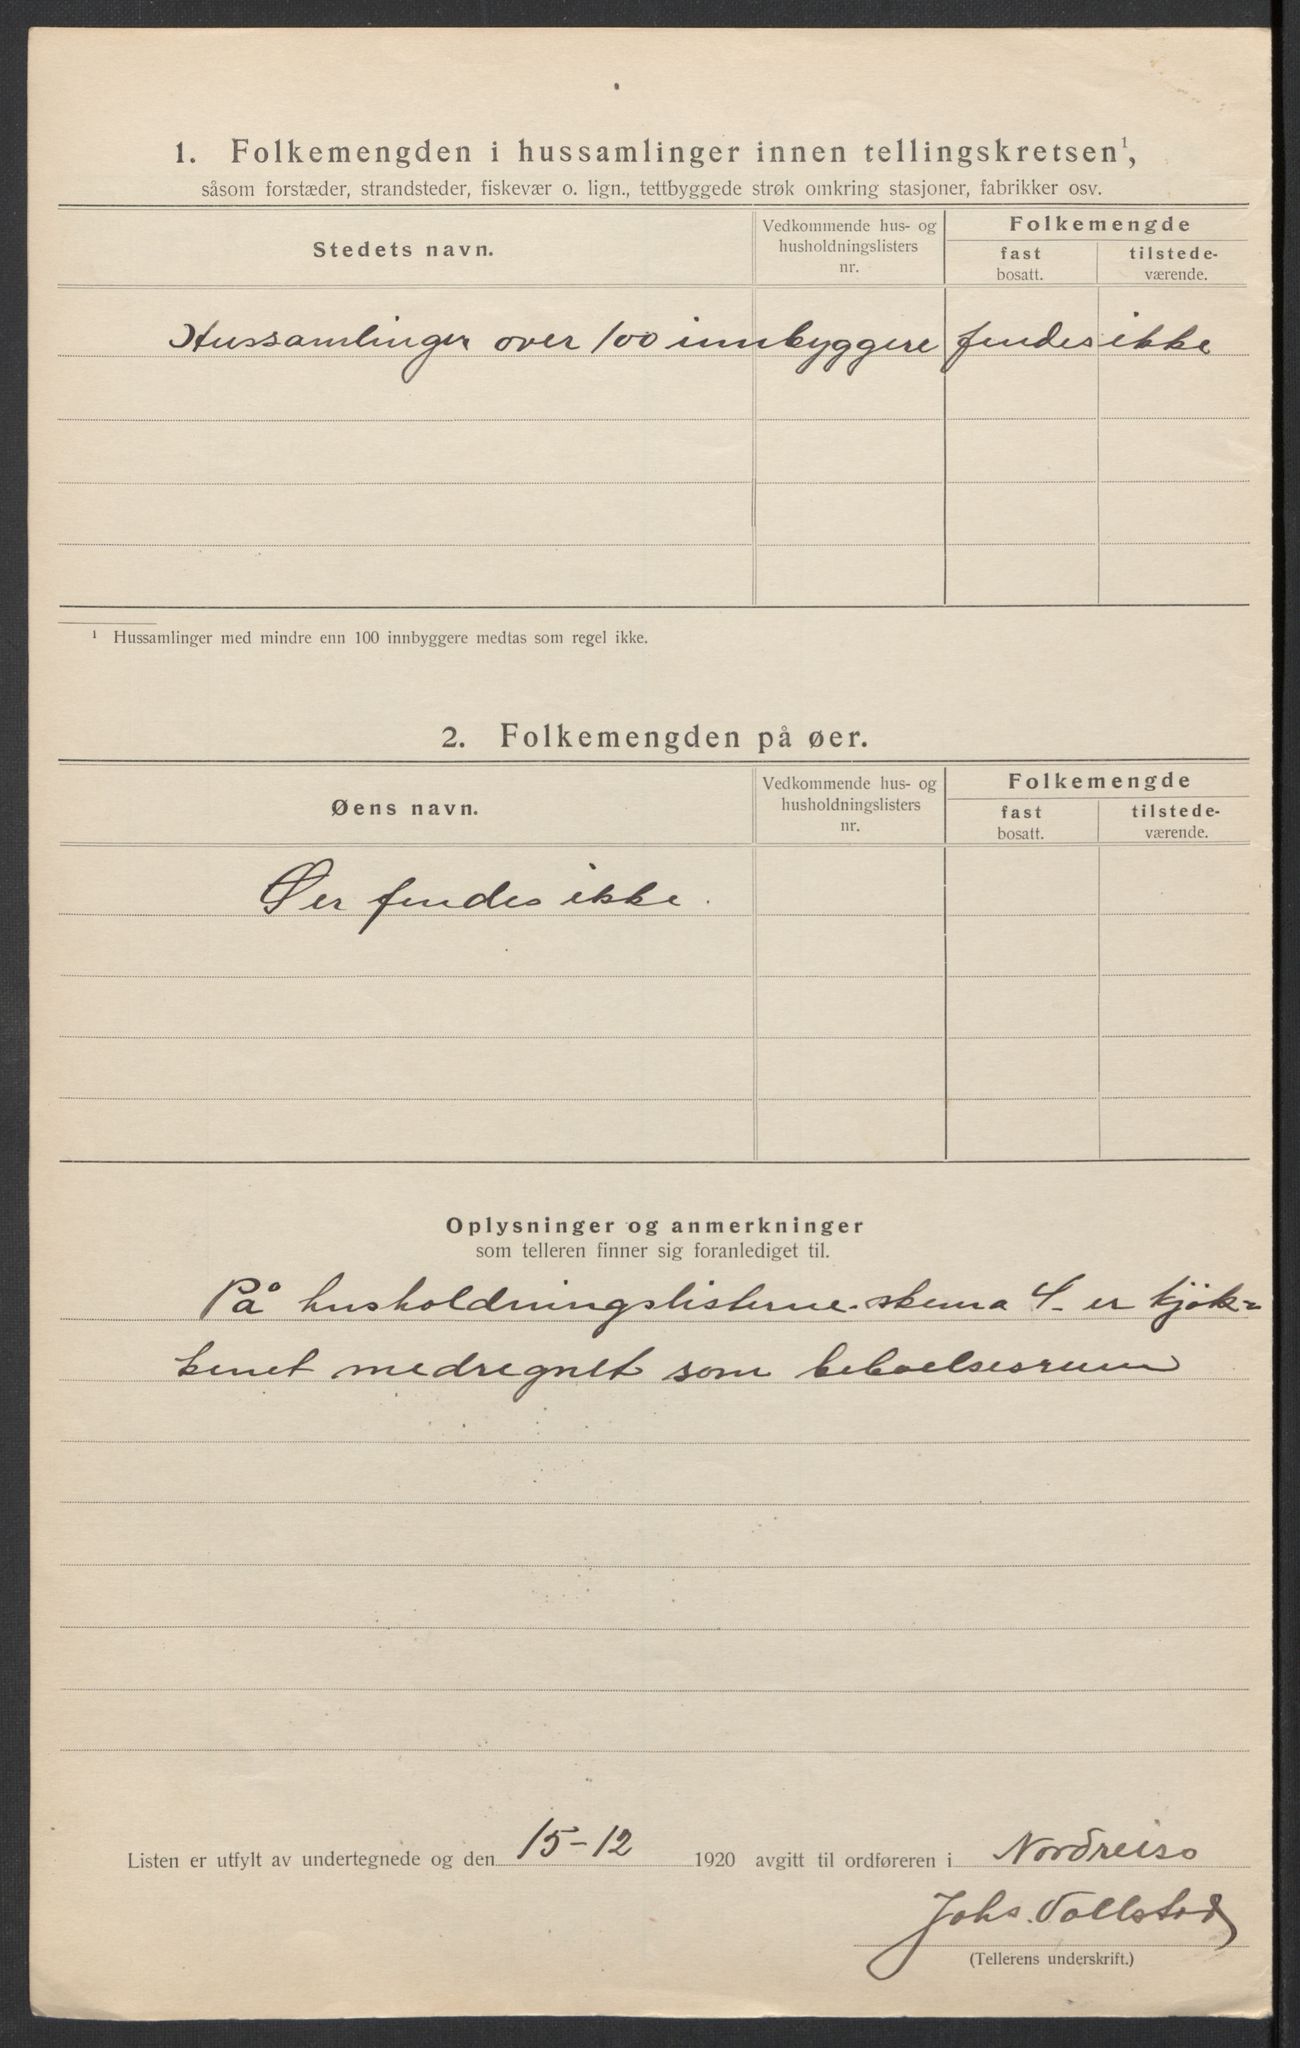 1. Folkemengden i hussamlinger innen tellingskretsen¹,
såsom forstæder, strandsteder, fiskevær o. lign., tettbyggede strøk omkring stasjoner, fabrikker osv.
Stedets navn.
Vedkommende hus- og
husholdningslisters
nr.
Folkemengde
fast
bosatt.
tilstede-
værende.
Hussamlinger over 100 innbyggere findes ikke
¹ Hussamlinger med mindre enn 100 innbyggere medtas som regel ikke.
2. Folkemengden på øer.
Øens navn.
Vedkommende hus- og
husholdningslisters
nr.
Folkemengde
fast
bosatt.
tilstede-
værende.
Øer findes ikke.
Oplysninger og anmerkninger
som telleren finner sig foranlediget til.
På husholdningslisterne. skema 4- er kjøk=
kenet medregnet som beboelsesrum
Listen er utfylt av undertegnede og den 15-12 1920 avgitt til ordføreren i Nordreisa
Johs. Vollstad
(Tellerens underskrift.)